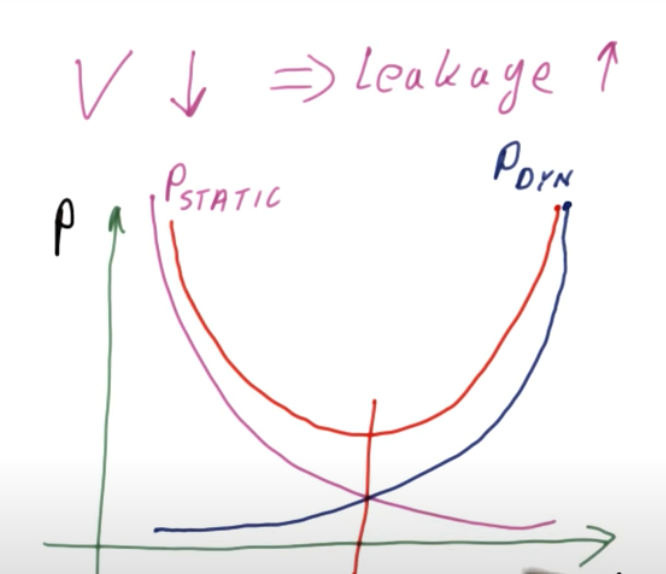 V ↓ ⇒ Leakage ↑
P P_STATIC P_DYN